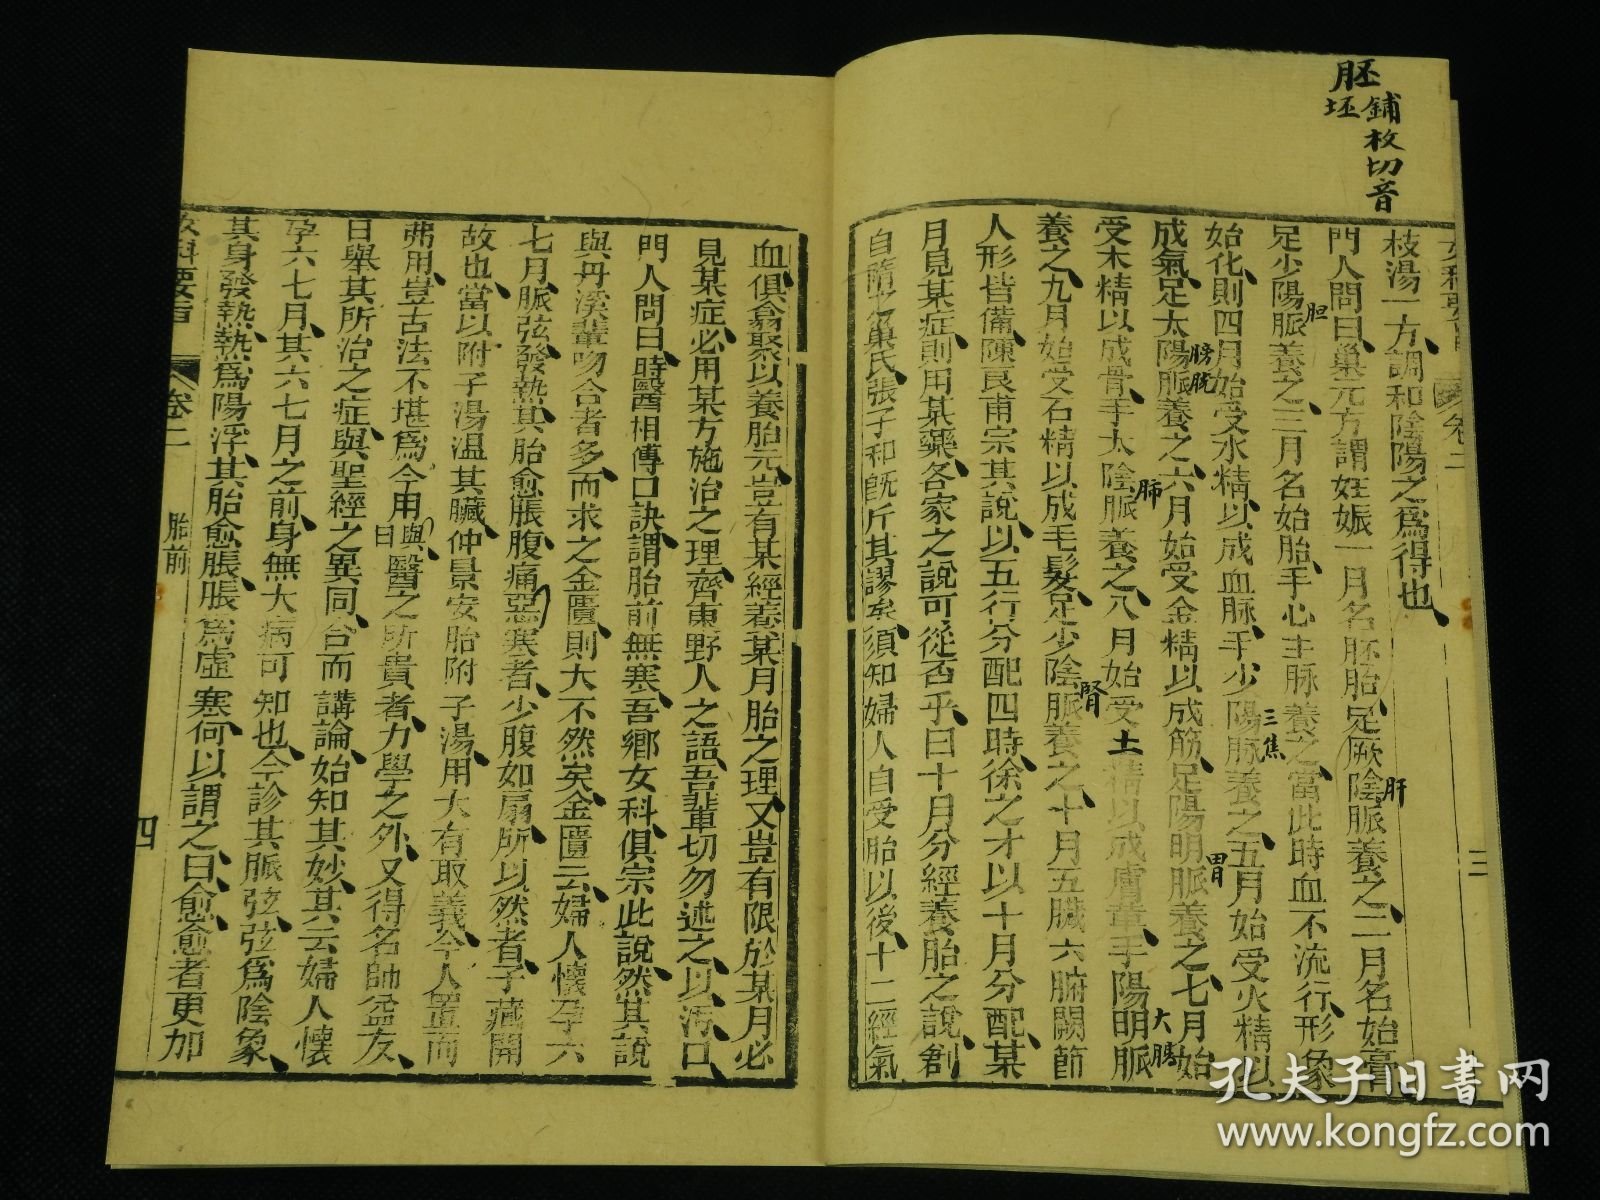 胚 鋪枚切音
坯
女科要旨 卷二 三
枝湯一方調和陰陽之為得也
門人問曰巢元方謂妊娠一月名胚胎足厥陰脈養之二月名始膏
肝
足少陽脈養之三月名始胎手心主脉養之當此時血不流行形象
胆
始化則四月始受水精以成血脉手少陽脉養之五月始受火精以
三焦
成氣足太陽脈養之六月始受金精以成筋足陽明脈養之七月始
膀胱
胃
受木精以成骨手太陰脈養之八月始受土精以成膚革手陽明脈
肺
大腸
養之九月始受石精以成毛髮足少陰脈養之十月五臟六腑關節
腎
人形皆備陳良甫宗其說以五行分配四時徐之才以十月分配某
月見某症則用某藥各家之說可從否乎曰十月分經養胎之說創
自隋之巢氏張子和既斥其謬矣須知婦人自受胎以後十二經氣
血俱翕聚以養胎元豈有某經養某月胎之理又豈有限於某月必
見某症必用某方施治之理齊東野人之語吾輩切勿述之以汚口
門人問曰時醫相傳口訣謂胎前無寒吾鄉女科俱宗此說然其說
與丹溪輩吻合者多而求之金匱則大不然矣金匱云婦人懷孕六
七月脈弦發熱其胎愈脹腹痛惡寒者少腹如扇所以然者子藏開
故也當以附子湯溫其臟仲景安胎附子湯用大有取義今人置而
弗用豈古法不堪為今用與曰醫之所貴者力學之外又得名師益友
日舉其所治之症與聖經之異同合而講論始知其妙其云婦人懷
孕六七月其六七月之前身無大病可知也今診其脈弦弦為陰象
其身發熱熱為陽浮其胎愈脹脹為虛寒何以謂之曰愈愈者更加
女科要旨 卷二 胎前 四
孔夫子旧書网
www.kongfz.com